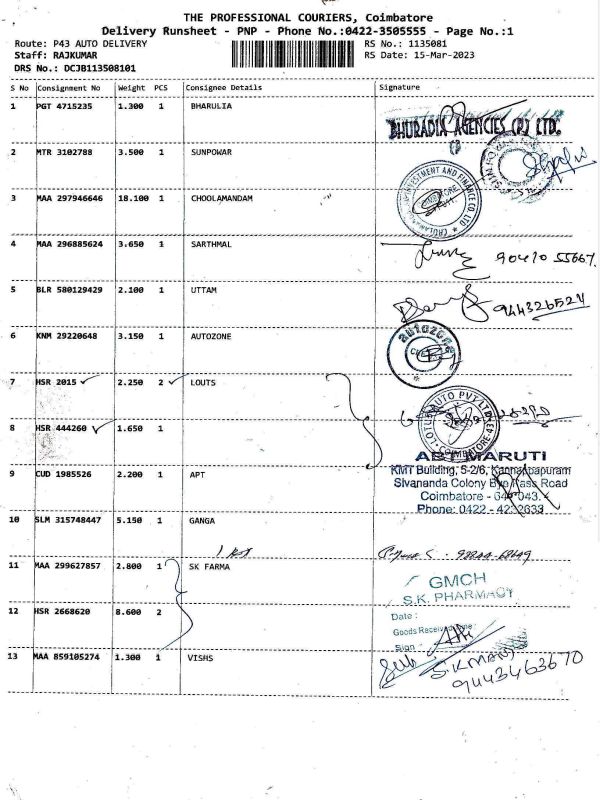 THE PROFESSIONAL COURIERS, Coimbatore
Delivery Runsheet - PNP - Phone No.:0422-3505555 - Page No.:1
Route: P43 AUTO DELIVERY RS No.: 1135081
Staff: RAJKUMAR RS Date: 15-Mar-2023
DRS No.: DCJB113508101
S No Consignment No Weight PCS Consignee Details Signature
1 PGT 4715235 1.300 1 BHARULIA
BHURADIA AGENCIES (P) LTD.
2 MTR 3102788 3.500 1 SUNPOWAR
INVESTMENT AND FINANCE CO LTD
3 MAA 297946646 18.100 1 CHOOLAMANDAM
4 MAA 296885624 3.650 1 SARTHMAL
5 BLR 580129429 2.100 1 UTTAM
944326524
6 KNM 29220648 3.150 1 AUTOZONE
autozone
7 HSR 2015 2.250 2 LOUTS
LOTUS AUTO PVT LTD
COIMBATORE 43
8 HSR 444260 1.650 1
ABT MARUTI
KMT Building, 5-2/6, Kannappapuram
Sivananda Colony Bye Pass Road
Coimbatore - 641 043.
Phone: 0422 - 4232633
9 CUD 1985526 2.200 1 APT
10 SLM 315748447 5.150 1 GANGA
11 MAA 299627857 2.800 1 SK FARMA
GMCH
S.K. PHARMACY
12 HSR 2668620 8.600 2
Date :
Goods Received
Sign
13 MAA 859105274 1.300 1 VISHS
S.K MANI
9443463670